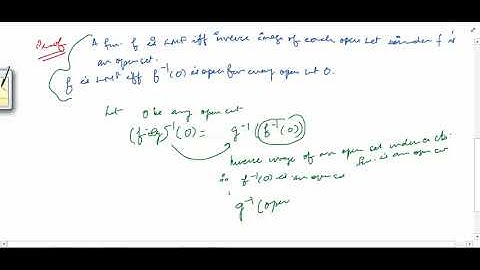 Proof
A fun. f is LMF iff inverse image of each open set under f is
an open set.
f is LMF iff f⁻¹(O) is open for every open set O.
Let O be any open set
(f∘g)⁻¹(O) = g⁻¹(f⁻¹(O))
Inverse image of an open set under a cts.
fun. is an open set
f⁻¹(O) is an open set
g⁻¹(open